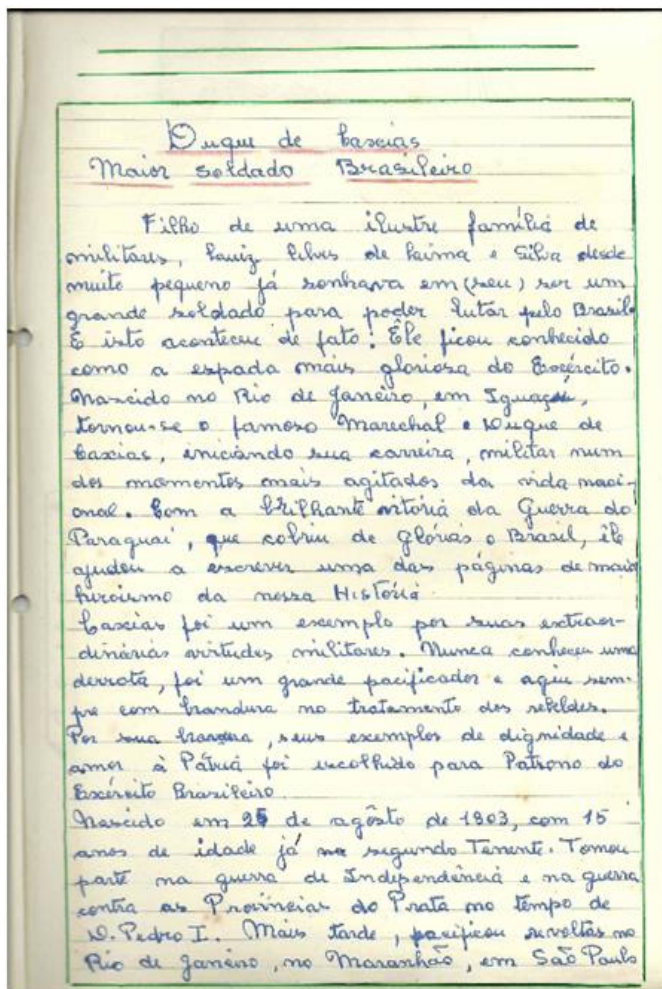 Duque de Caxias
Maior soldado Brasileiro
Filho de uma ilustre família de
militares, Luiz Alves de Laima e Silva desde
muito pequeno já sonhava em (seu) ser um
grande soldado para poder lutar pelo Brasil.
E isto aconteceu de fato. Êle ficou conhecido
como a espada mais gloriosa do Exército.
Nascido no Rio de Janeiro, em Iguaçú,
tornou-se o famoso Marechal e Duque de
Caxias, iniciando sua carreira, militar num
dos momentos mais agitados da vida naci-
onal. Com a brilhante vitória da Guerra do
Paraguai, que cobriu de glórias o Brasil, êle
ajudou a escrever uma das páginas de mais
heroismo da nossa História
Caxias foi um exemplo por suas extraor-
dinárias virtudes militares. Nunca conheceu uma
derrota, foi um grande pacificador e agiu sem-
pre com brandura no tratamento dos rebeldes.
Por sua bravura, seus exemplos de dignidade e
amor à Pátria foi escolhido para Patrono do
Exército Brasileiro.
Nascido em 25 de agôsto de 1803, com 15
anos de idade já segundo Tenente. Tomou
parte na guerra de Independência e na guerra
contra as Províncias do Prata no tempo de
D. Pedro I. Mais tarde, pacificou revoltas no
Rio de Janeiro, no Maranhão, em São Paulo